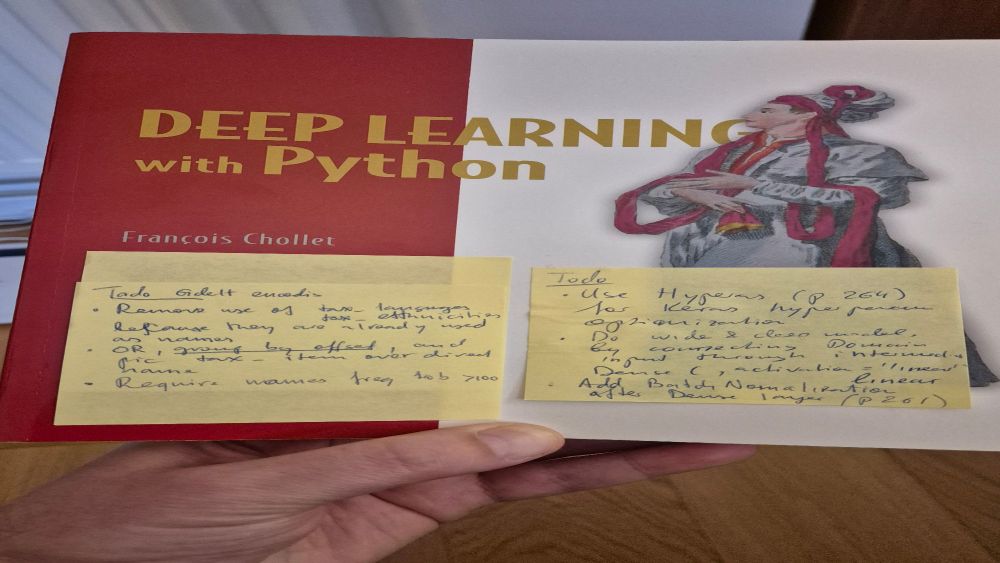 DEEP LEARNING
with Python
François Chollet
Todo Gdelt encodin
• Remove use of tax_languages
tax_ethnicities
because they are already used
as names
• OR, group by offset, and
pic tax_ item over direct
name
• Require names freq to b >100
Todo
• Use Hyperas (p 264)
for Keras hyperparam
optimization
• Do wide & deep model,
by connecting Domain
input through intermed.
Dense (, activation = "linear"
linear
• Add Batch Nomalization
after Dense layer (p 261)